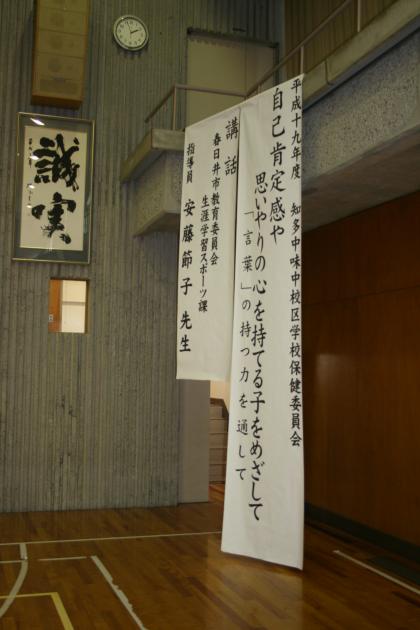 平成十九年度 知多中味中校区学校保健委員会
自己肯定感や
思いやりの心を持てる子をめざして
「言葉」の持つ力を通して
講話
春日井市教育委員会
生涯学習スポーツ課
指導員 安藤節子 先生
誠実